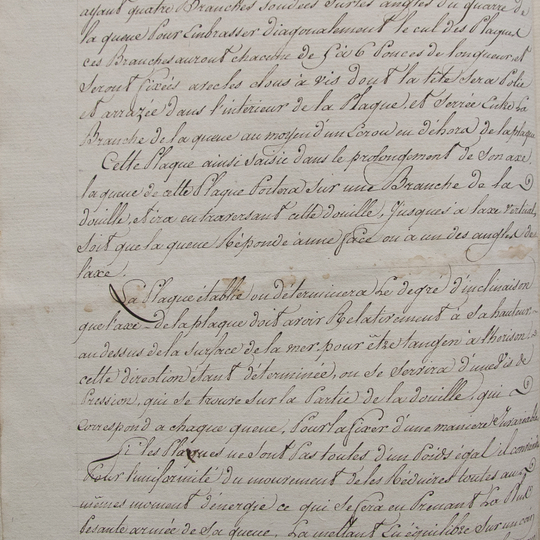 ayant quatre Branches soudées sur les angles du quarré de
la queue Pour Embrasser diagonalement le cul des Plaques
ces Branches auront chacune de 5 à 6 Pouces de longueur et
Seront fixées avec les clous à vis dont la tête Sera Polie
et arrazée dans l'intérieur de la Plaque et Serrée Entre la
Branche de la queue au moyen d'un Ecrou en déhors de la plaque
Cette Plaque ainsi saisie dans le prolongement de son axe
la queue de cette Plaque Portera sur une Branche de la
douille, et ira en traversant cette douille, Jusques à l'axe vertical,
Soit que la queue Réponde à une face ou à un des angles de
l'axe.
La Plaque établie on déterminera Le degré d'inclinaison
que l'axe de la plaque doit avoir Relativement à Sa hauteur
au dessus de la surface de la mer, pour être tangen' à l'horison
cette direction étant déterminée, on se Servira d'une vis de
Pression, qui se trouve sur la Partie de la douille, qui
correspond a chaque queue, Pour la fixer d'une manière Invariable
Si les Plaques ne Sont Pas toutes d'un Poids égal il
Pour l'uniformité du mouvement de les Réduires toutes au
mêmes moment d'énergie ce qui se fera en Prenant La Plus
besante armée de Sa queue, La mettant En équilibre Sur un